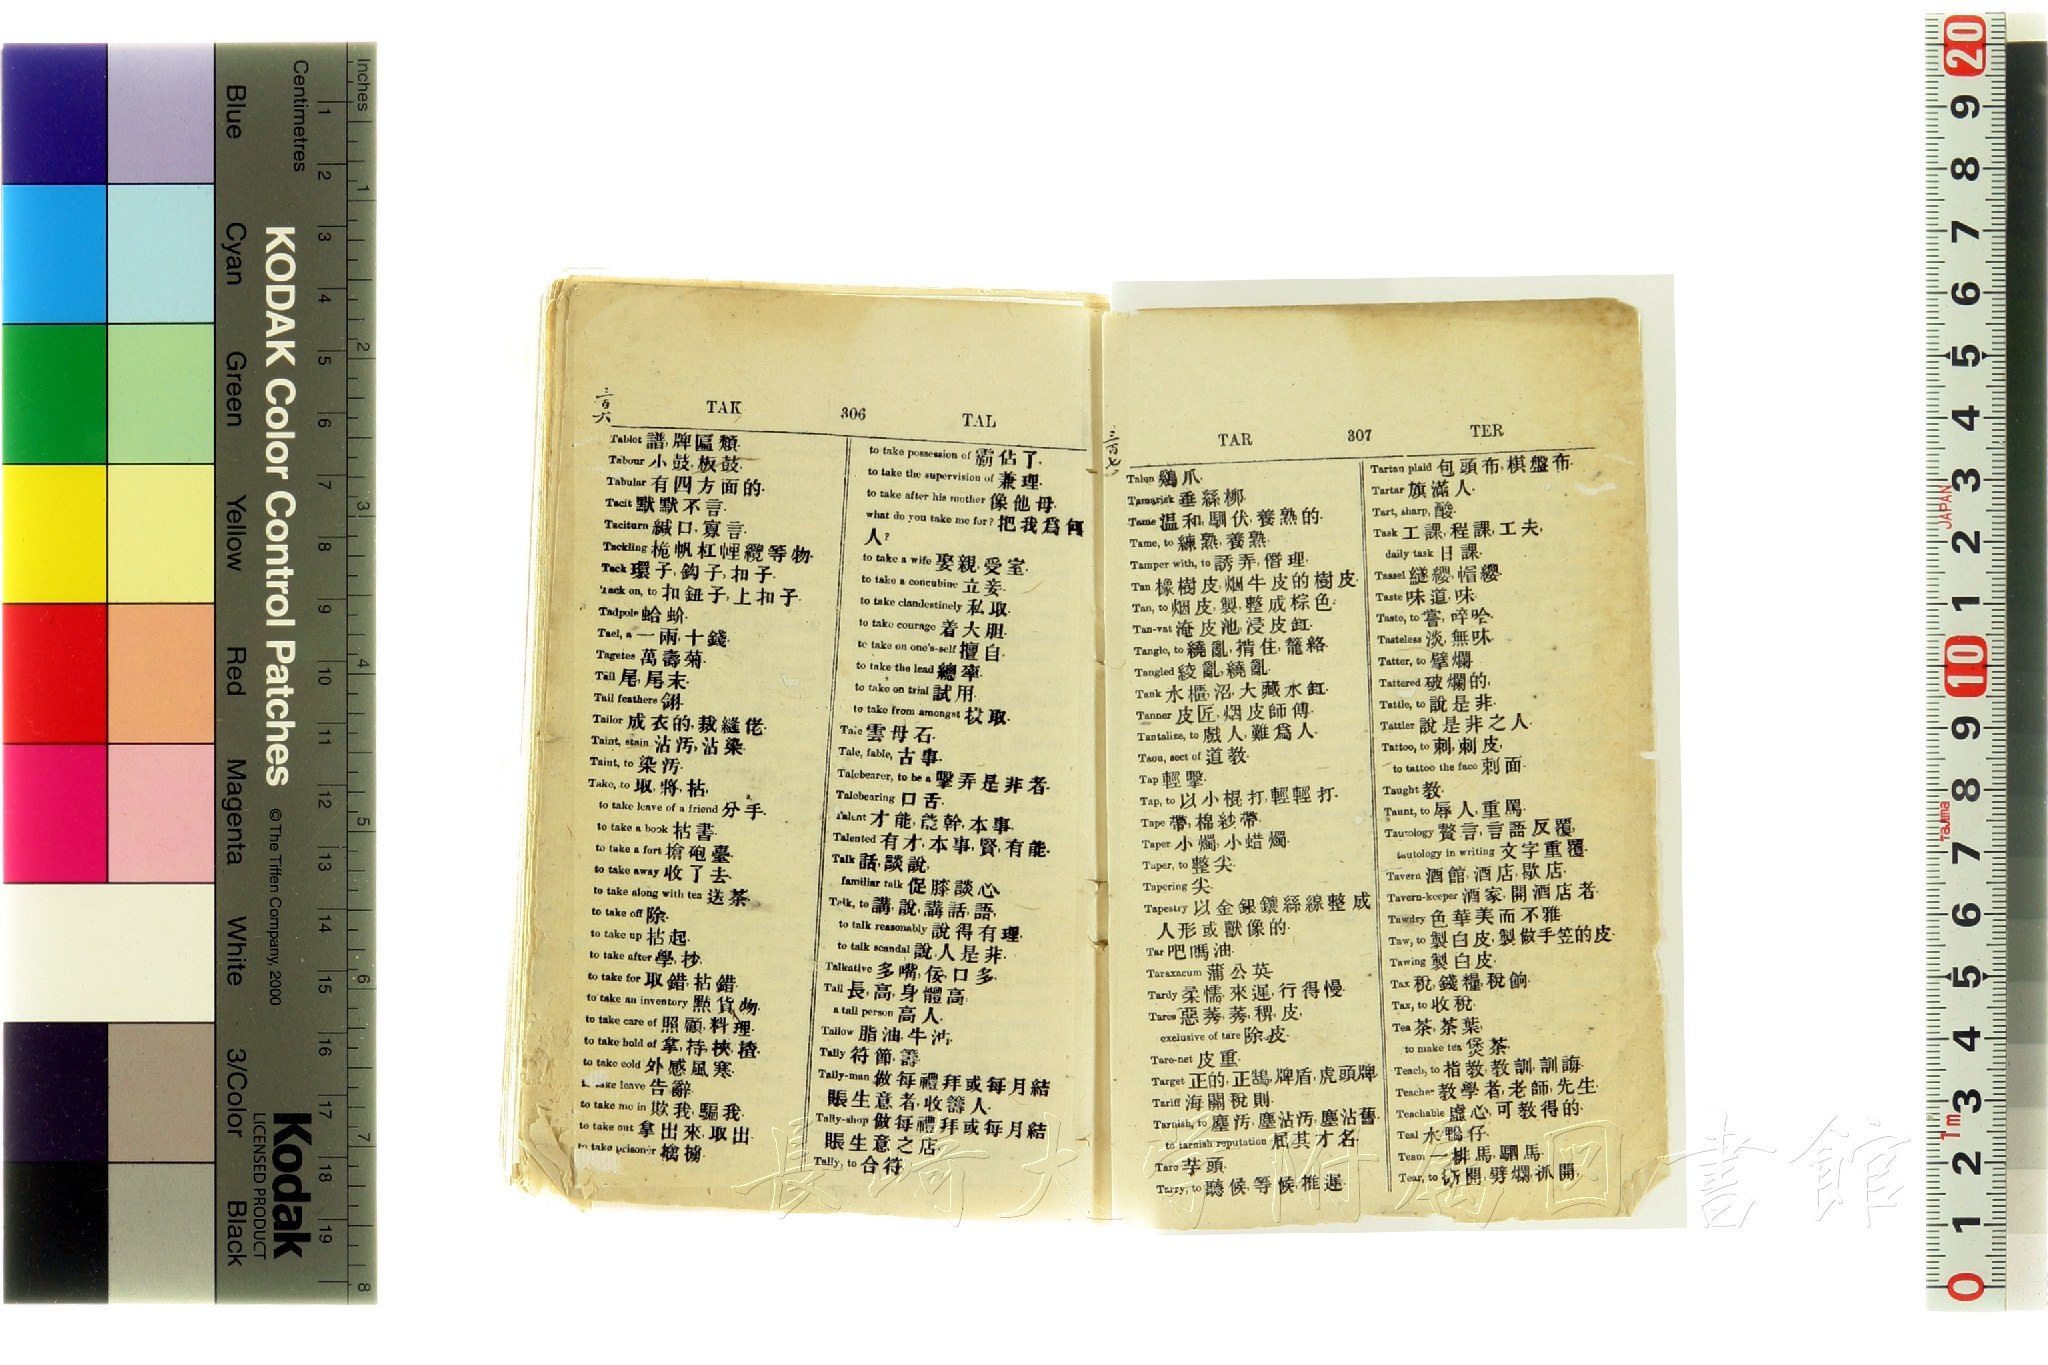 Inches
Centimetres
KODAK Color Control Patches © The Tiffen Company, 2000
Kodak
LICENSED PRODUCT
Blue Cyan Green Yellow Red Magenta White 3/Color Black
三百六
TAK 306 TAL
Tablet 譜, 牌匾類.
Tabour 小鼓, 板鼓.
Tabular 有四方面的.
Tacit 默默不言.
Taciturn 緘口, 寡言.
Tack 環子, 鈎子, 扣子.
Tack on, to 扣鈕子, 上扣子.
Tadpole 蛤蚧.
Tael, a 一兩, 十錢.
Tagetes 萬壽菊.
Tail 尾, 尾末.
Tail feathers 翎.
Tailor 成衣的, 裁縫佬.
Taint, stain 沾汚, 沾染.
Taint, to 染汚.
Take, to 取, 將, 拈,
to take leave of a friend 分手.
to take a book 拈書.
to take a fort 搶砲臺.
to take away 收了去.
to take along with tea 送茶.
to take off 除.
to take up 拈起.
to take after 學, 抄.
to take for 取錯, 拈錯.
to take an inventory 點貨物.
to take care of 照顧, 料理.
to take hold of 拿, 持, 挾, 揸.
to take cold 外感風寒.
to take leave 告辭.
to take me in 欺我, 騙我.
to take out 拿出來, 取出.
to take prisoner 擒擄.
to take possession of 霸佔了.
to take the supervision of 兼理.
to take after his mother 像他母.
what do you take me for? 把我爲何
人?
to take a wife 娶親, 受室.
to take a concubine 立妾.
to take clandestinely 私取.
to take courage 着大胆.
to take on one's-self 擅自.
to take the lead 總率.
to take on trial 試用.
to take from amongst 拔取.
Talc 雲母石.
Tale, fable, 古事.
Talebearer, to be a 擊弄是非者.
Talebearing 口舌.
Talent 才能, 能幹, 本事.
Talented 有才, 本事, 賢, 有能.
Talk 話, 談說,
familiar talk 促膝談心.
Talk, to 講, 說, 講話, 語,
to talk reasonably 說得有理.
to talk scandal 說人是非.
Talkative 多嘴, 佞, 口多.
Tall 長, 高, 身體高,
a tall person 高人.
Tallow 脂油, 牛油.
Tally 符節, 籌.
Tally-man 做每禮拜或每月結
賬生意者, 收籌人.
Tally-shop 做每禮拜或每月結
賬生意之店.
Tally, to 合符.
三百七
TAR 307 TER
Talon 鷄爪.
Tamarisk 垂絲柳.
Tame 温和, 馴伏, 養熟的.
Tame, to 練熟, 養熟.
Tamper with, to 誘弄, 僭理.
Tan 橡樹皮, 烟牛皮的樹皮.
Tan, to 烟皮, 製, 整成棕色.
Tan-vat 淹皮池, 浸皮缸.
Tangle, to 繞亂, 揹住, 籠絡.
Tangled 絞亂, 繞亂.
Tank 水櫃, 沼, 大藏水缸.
Tanner 皮匠, 烟皮師傅.
Tantalize, to 戲人, 難爲人.
Taou, sect of 道教.
Tap 輕擊.
Tap, to 以小棍打, 輕輕打.
Tape 帶, 棉紗帶.
Taper 小燭, 小蜡燭.
Taper, to 整尖.
Tapering 尖.
Tapestry 以金銀鑲絲線整成
人形或獸像的.
Tar 吧嗎油.
Taraxacum 蒲公英.
Tardy 柔懦, 來遲, 行得慢.
Tares 惡莠, 莠, 稗, 皮,
exclusive of tare 除皮.
Tare-net 皮重.
Target 正的, 正鵠, 牌盾, 虎頭牌.
Tariff 海關稅則.
Tarnish, to 塵汚, 塵沾汚, 塵沾舊.
to tarnish reputation 屈其才名.
Taro 芋頭.
Tarry, to 聽候, 等候, 推遲.
Tartan plaid 包頭布, 棋盤布.
Tartar 旗滿人.
Tart, sharp, 酸.
Task 工課, 程課, 工夫,
daily task 日課.
Tassel 繸纓, 帽纓.
Taste 味道, 味.
Taste, to 嘗, 啐哈.
Tasteless 淡, 無味.
Tatter, to 擘爛.
Tattered 破爛的,
Tattle, to 說是非.
Tattler 說是非之人.
Tattoo, to 刺, 刺皮,
to tattoo the face 刺面.
Taught 教.
Taunt, to 辱人, 重罵.
Tautology 贅言, 言語反覆,
tautology in writing 文字重覆.
Tavern 酒館, 酒店, 歇店.
Tavern-keeper 酒家, 開酒店者.
Tawdry 色華美而不雅.
Taw, to 製白皮, 製做手笠的皮.
Tawing 製白皮.
Tax 稅, 錢糧, 稅餉.
Tax, to 收稅.
Tea 茶, 茶葉,
to make tea 煲茶.
Teach, to 指教, 教訓, 訓誨.
Teacher 教學者, 老師, 先生.
Teachable 虛心, 可教得的.
Teal 水鴨仔.
Team 一排馬, 駟馬.
Tear, to 劈爛, 抓開.
長崎大学附属図書館
JAPAN
Tajima
1m